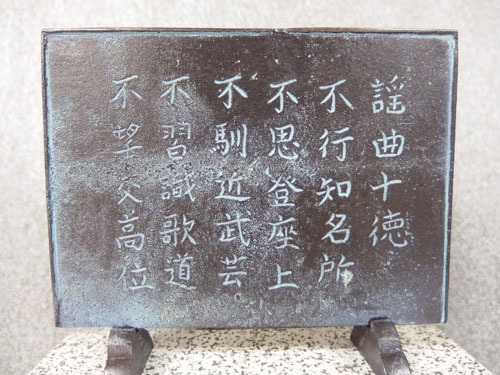 謡曲十徳
不行知名所
不思登座上
不馴近武芸。
不習識歌道
不望交高位